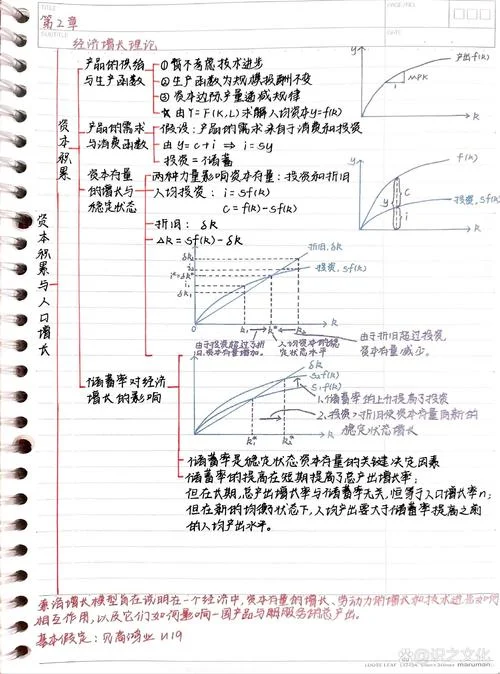 第2章
DATE
经济增长理论
资本积累与人口增长
资本积累
产品的供给与生产函数
① 暂不考虑技术进步
② 生产函数为规模报酬不变
③ 资本边际产量递减规律
由Y=F(K,L)求解人均资本y=f(k)
产品的需求与消费函数
假设:产品的需求来自于消费和投资
由 y=c+i ⇒ i=sy
投资=储蓄
资本存量的增长与稳定状态
两种力量影响资本存量:投资和折旧
人均投资: i=sf(k)
C=f(k)-sf(k)
折旧: δk
Δk=sf(k)-δk
产出f(k)
MPK
1
k
y
f(k)
C
y
投资, sf(k)
i
k
折旧, δk
投资, sf(k)
δk₂
i₂
i*=δk*
i₁
δk₁
0
k₁
k*
k₂
k
由于投资超过了折旧,资本存量增加。
人均资本的稳定状态水平
由于折旧超过投资,资本存量减少。
储蓄率对经济增长的影响
δk
s₂f(k)
s₁f(k)
k₁*
k₂*
k
1、储蓄率的上升提高了投资
2、投资>折旧使资本存量向新的稳定状态增长
储蓄率是稳定状态资本存量的关键决定因素
储蓄率的提高在短期提高了总产出增长率;
但在长期,总产出增长率与储蓄率无关,恒等于人口增长率n;
但在新的均衡状态下,人均产出要大于储蓄率提高之前
的人均产出水平。
索洛增长模型旨在说明在一个经济中,资本存量的增长、劳动力的增长和技术进步如何
相互作用,以及它们如何影响一国产品与服务的总产出。
基本假定:贝高鸿业 P119
LOOSE LEAF
maruman
识之文化